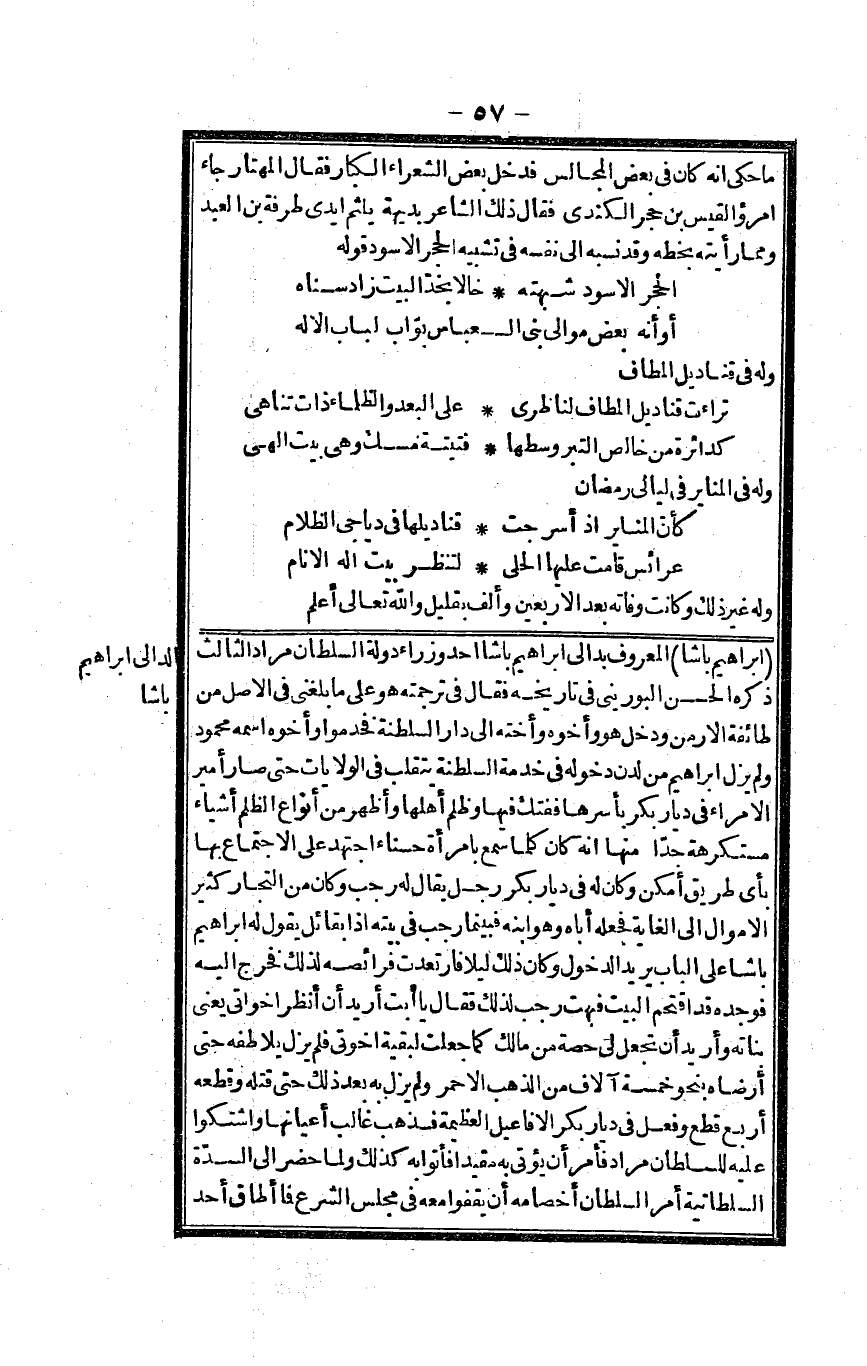 – ٥٧ –
ما حكى انه كان فى بعض المجالس فدخل بعض الشعراء الكبار فقال المهتار جاء
امرؤ القيس بن حجر الكندى فقال ذلك الشاعر بديهة يالثم ايدى طرفة بن العبد
ومما رأيته بخطه وقد نسبه الى نفسه فى تشبيه الحجر الاسود قوله
الحجر الاسود شبهته * خالا بخد البيت زاد سناه
أو أنه بعض موالى بنى الــعباس بواب لباب الاله
وله فى قناديل المطاف
تراءت قناديل المطاف لناظرى * على البعد والظلماء ذات تناهى
كدائرة من خالص التبر وسطها * فتيتة مسك وهى بيت الهى
وله فى المناير فى ليالى رمضان
كأن المناير اذ أسرجت * قناديلها فى دياجى الظلام
عرائس قامت عليها الحلى * لتنظر بيت اله الانام
وله غير ذلك وكانت وفاته بعد الاربعين وألف بقليل والله تعالى أعلم
(ابراهيم باشا) المعروف بدالى ابراهيم باشا احد وزراء دولة السلطان مراد الثالث
الدالى ابراهيم
باشا
ذكره الحسن البورينى فى تاريخه فقال فى ترجمته هو على ما بلغنى فى الاصل من
طائفة الارمن ودخل هو وأخوه وأخته الى دار السلطنة فخدموا وأخوه اسمه محمود
ولم يزل ابراهيم من لدن دخوله فى خدمة السلطنة يتقلب فى الولايات حتى صار أمير
الامراء فى ديار بكر بأسرها ففتك فيها وظلم أهلها وأظهر من أنواع الظلم أشياء
مستكرهة جدّا منها انه كان كلما سمع بامرأة حسناء اجتهد على الاجتماع بها
بأى طريق أمكن وكان له فى ديار بكر رجل يقال له رجب وكان من التجار كثير
الاموال الى الغاية فجعله أباه وهو ابنه فبينما رجب فى بيته اذا بقائل يقول له ابراهيم
باشا على الباب يريد الدخول وكان ذلك ليلا فارتعدت فرائصه لذلك فخرج اليه
فوجده قد اقتحم البيت فبهت رجب لذلك فقال يا أبت أريد أن أنظر اخواتى يعنى
بناته وأريد أن تجعل لى حصة من مالك كما جعلت لبقية اخوتى فلم يزل يلاطفه حتى
أرضاه بنحو خمسة آلاف من الذهب الاحمر ولم يزل به بعد ذلك حتى قتله وقطعه
أربع قطع وفعل فى ديار بكر الافاعيل العظيمة فذهب غالب أعيانها واشتكوا
عليه للسلطان مراد فأمر أن يؤتى به مقيدا فأتوا به كذلك ولما حضر الى السدّة
السلطانية أمر السلطان أخصامه أن يقفوا معه فى مجلس الشرع فما أطاق أحد